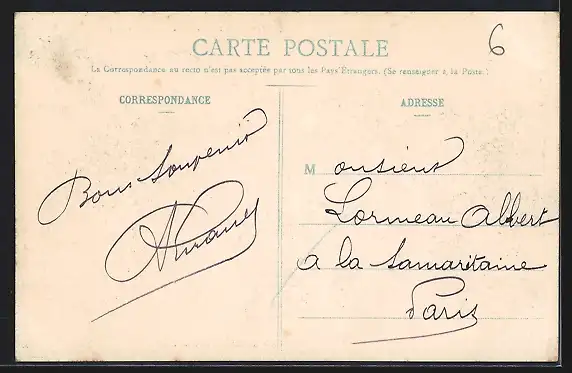 6
CARTE POSTALE
La Correspondance au recto n'est pas acceptée par tous les Pays Étrangers. (Se renseigner à la Poste.)
CORRESPONDANCE
Bons Souvenir
ADRESSE
Monsieur
Lormeau Albert
a la Samaritaine
Paris